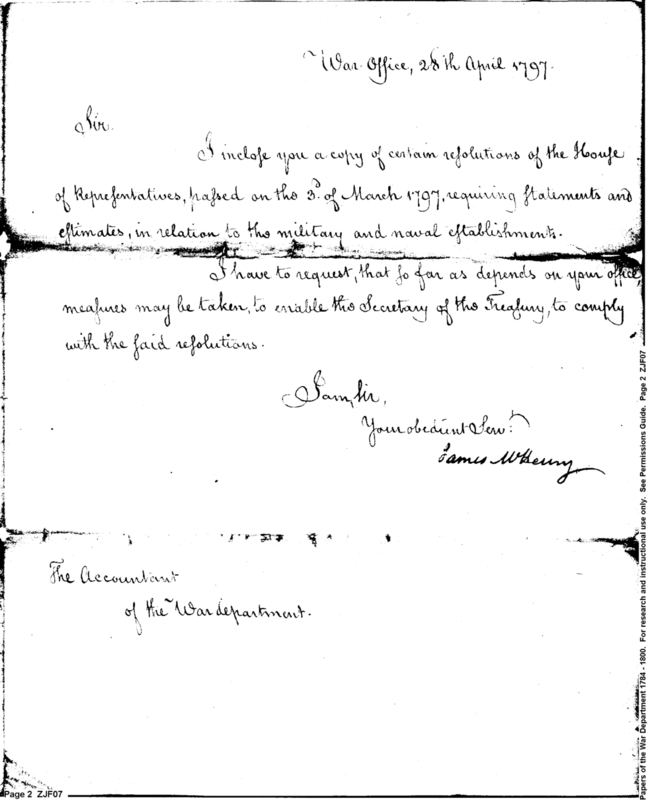 War Office, 28th April 1797.
Sir.
I inclose you a copy of certain resolutions of the House
of Representatives, passed on the 3d. of March 1797, requiring Statements and
estimates, in relation to the military and naval establishments.
I have to request, that so far as depends on your office,
measures may be taken, to enable the Secretary of the Treasury, to comply
with the said resolutions.
I am, Sir,
Your obedient Servt.
James McHenry
The Accountant
of the War department.
Page 2 ZJF07
Papers of the War Department 1784 - 1800. For research and instructional use only. See Permissions Guide. Page 2 ZJF07